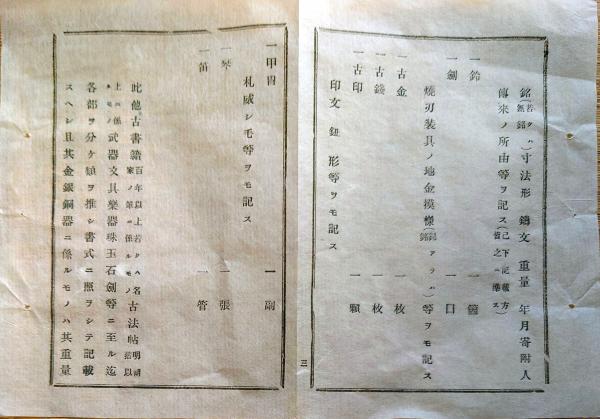 銘(若クハ無銘)寸法形 鑄文 重量 年月寄附人
傳來ノ所由等ヲ記ス(已下記載方皆之ニ準ス)
一鈴 一箇
一劍 一口
燒刃裝具ノ地金摸樣(銘アラハ)等ヲモ記ス
一古金 一枚
一古錢 一枚
一古印 一顆
印文 鈕 形等ヲモ記ス
三
一甲冑 一副
札威シ毛等ヲモ記ス
一琴 一張
一笛 一管
此他古書籍百年以上若クハ名家ノ筆ニ係ルモノ古法帖明調以
上ニ係ルモノ武器文具樂器珠玉石劍等ニ至ル迄
各部ヲ分ケ類ヲ推シ書式ニ照ヲシテ記載
スヘシ且其金銀銅器ニ係ルモノハ其重量